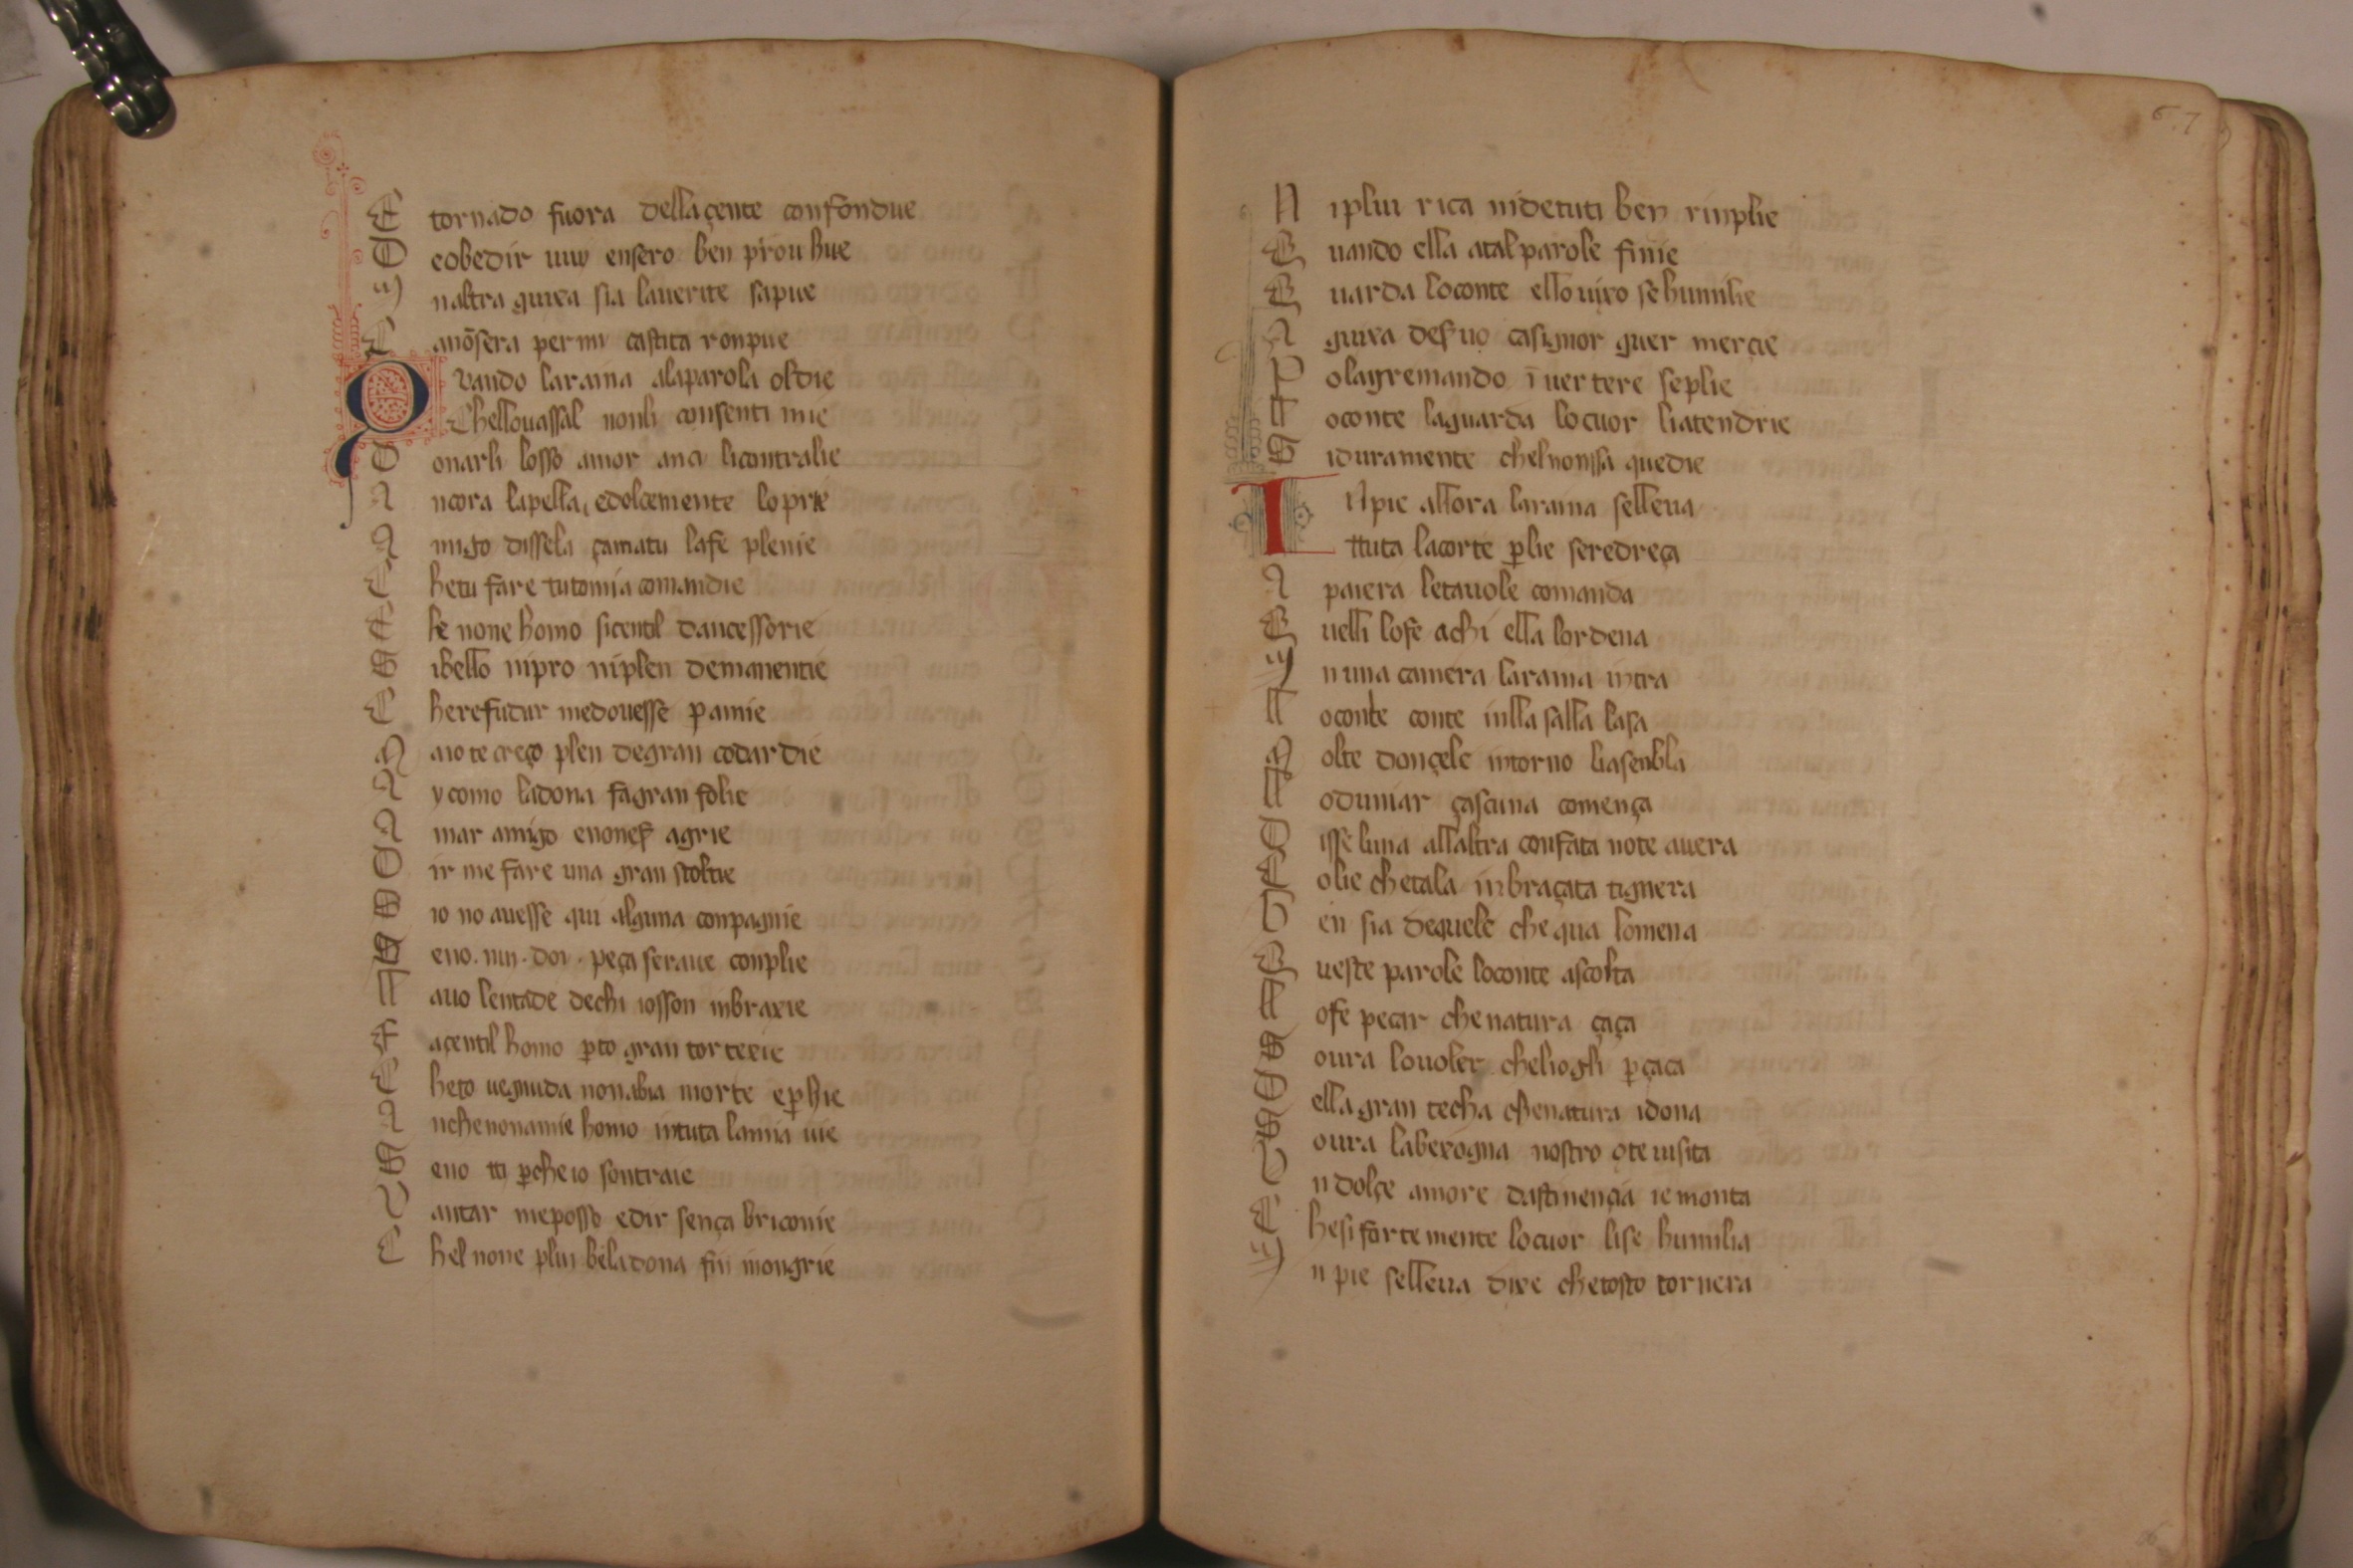 E tornado fuora dellaçente confondue
D eobedir uuio ensero ben prouhue
In altra guixa sia lauerite sapue
C anōsera per mi castita ronpue
Q vando laraina alaparola oldie
Chellouassal nonli consenti mie
D onarli losso amor anci licontralie
A ncora lapella edolcemente loprie
A migo dissela çamatu lafe plenie
C hetu fare tutomia comandie
E le none homo sicentil dancessorie
S ibello nipro niplen demanentie
C herefudar medouesse pamie
M aiote creço plen degran codardie
A y como ladona fagran folie
A mar amigo enonef agrie
D ir me fare una gran stoltie
S io no auesse qui alguna conpagnie
S eno. nui. doi. peça seraue conplie
L auo lentade dechi iosson inbraxie
F açentil homo pto gran torterie
C heto uegnuda nonabia morte ephie
A nchenonamie homo intuta lamia uie
S eno tti pcheio sontraie
V antar meposso edir sença briconie
C hel none plui beladona fin inongrie
N iplui rica nidetuti ben rinplie
Q uando ella atal parole finie
G uarda loconte ello uixo sehumilie
A guixa desuo casignor quer mercie
P olagremando ī uertere seplie
L oconte laguarda locuor liatendrie
S iduramente chelnonssa quedie
I Npie allora laraina selleua
Ttuta lacorte plie seredreça
A paiera letauole comanda
Q uelli lofe achi ella lordena
In una camera laraina intra
L oconte conte inlla salla lasa
M olte donçele intorno liasenbla
L oduniar çascuna comença
D isse luna allaltra confata note auera
C olie chetala inbraçata tignera
B en sia dequele che qua lomena
Q ueste parole loconte ascolta
L ofe pecar chenatura çaça
S oura louoler cheliogli pçaca
D ella gran techa chenatura idona
S oura laberogna nostro ote uisita
V n dolçe amore dastinençia ie monta
C hesifortemente locuor lise humilia
In pie selleua dixe chetosto tornera
6.7